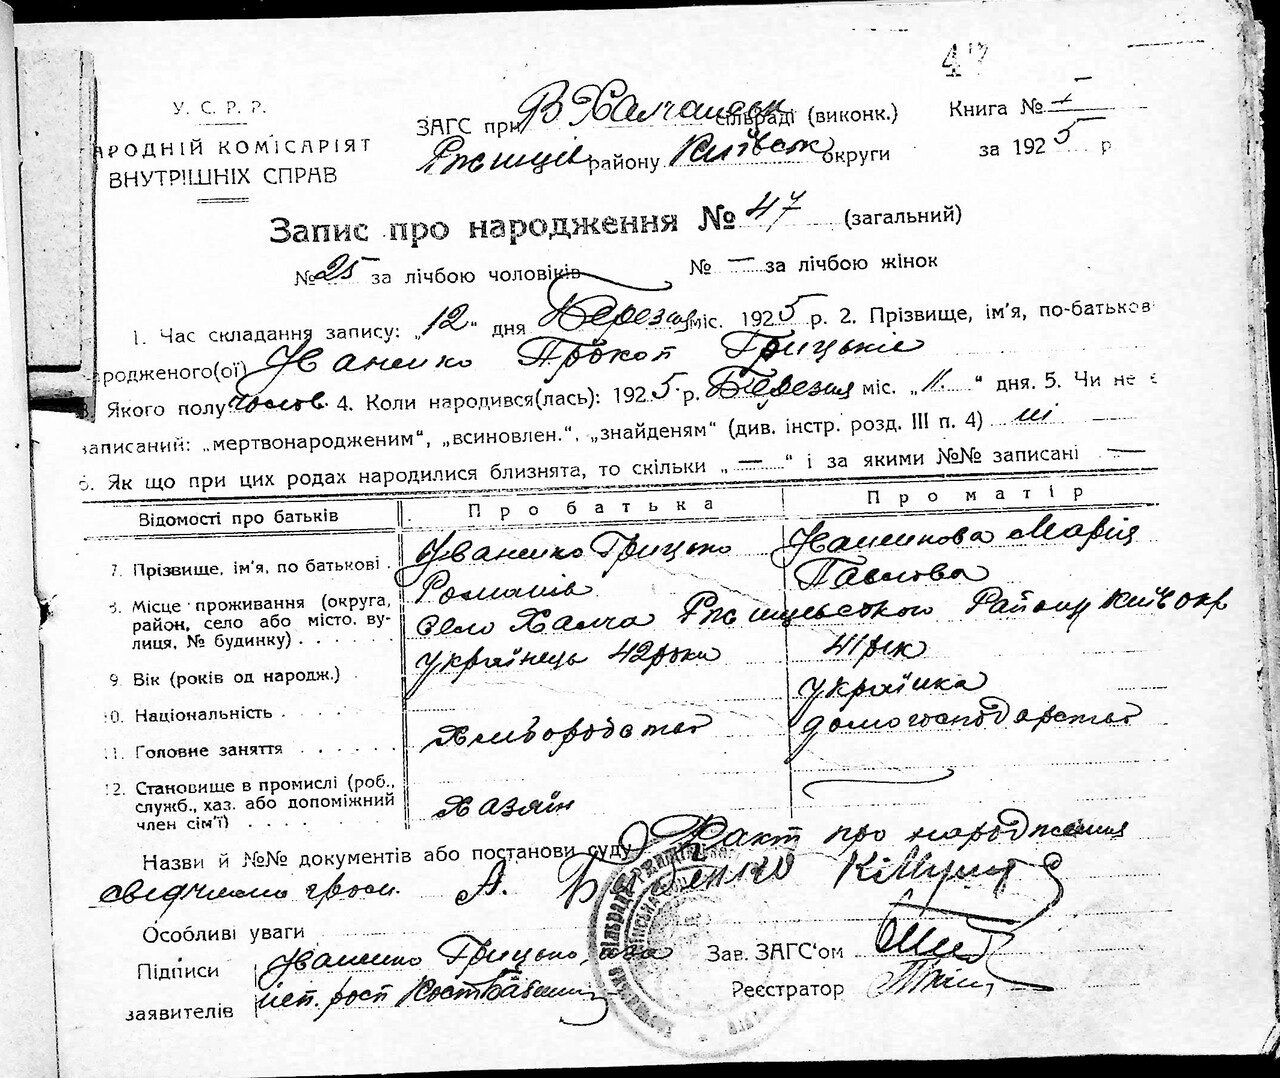 47
У. С. Р. Р.
АРОДНІЙ КОМІСАРІЯТ
ВНУТРІШНІХ СПРАВ
ЗАГС при В Халчанськ сільраді (виконк.)
Ржищів району Київськ округи
Книга № I
за 1925 р
Запис про народження № 47 (загальний)
№ 25 за лічбою чоловіків № — за лічбою жінок
1. Час складання запису: „12“ дня Березня міс. 1925 р. 2. Прізвище, ім'я, по-батьков
ародженого(ої) Іваненко Прокоп Грицьків
Якого полу чолов. 4. Коли народився(лась): 1925 р. Березня міс. „11.“ дня. 5. Чи не є
записаний: „мертвонародженим“, „всиновлен.“, „знайденям“ (див. інстр. розд. III п. 4) ні
6. Як що при цих родах народилися близнята, то скільки „—“ і за якими №№ записані —
Відомості про батьків Про батька Про матір
7. Прізвище, ім'я, по батькові . Іваненко Грицько Романів Іваненкова Марія Павлова
8. Місце проживання (округа, район, село або місто, вулиця, № будинку) . . . . село Халча Ржищевського Району Київ окр
9. Вік (років од народж.) . українець 42 роки 41 рік
10. Національність . . . . . українка
11. Головне заняття . . . . . . Хліборобство домогосподарство
12. Становище в промислі (роб.,
служб., хаз. або допоміжний
член сім'ї) . . . . . . . . Хазяїн
Назви й №№ документів або постанови суду Факт про народження
свідчимо гром. А. Бабенко
Особливі уваги
Підписи
заявителів
Іваненко Грицько, за
неп. росп Кость Бабенко
Зав. ЗАГС'ом
Реєстратор